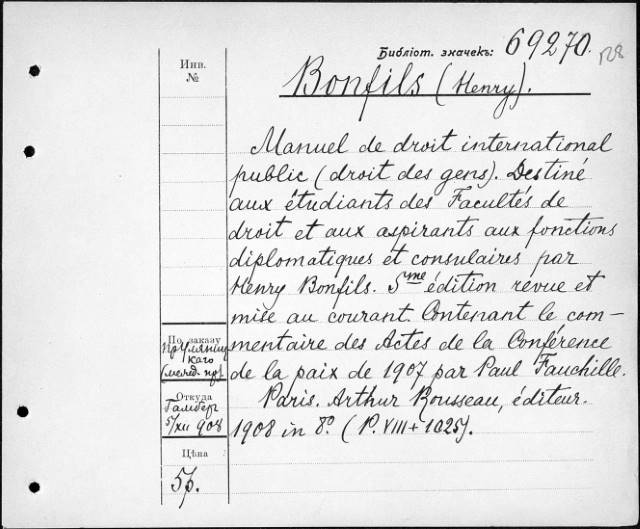 Библіот. значекъ: 69270.
Инв.
№
Bonfils (Henry).
Manuel de droit international
public (droit des gens). Destiné
aux étudiants des Facultés de
droit et aux aspirants aux fonctions
diplomatiques et consulaires par
Henry Bonfils. 5me édition revue et
mise au courant. Contenant le com-
mentaire des Actes de la Conférence
de la paix de 1907 par Paul Fauchille.
Paris. Arthur Rousseau, éditeur.
1908 in 8º. (P. VIII + 1025).
По заказу
каго
Откуда
5/XII 908
Цѣна
5р.